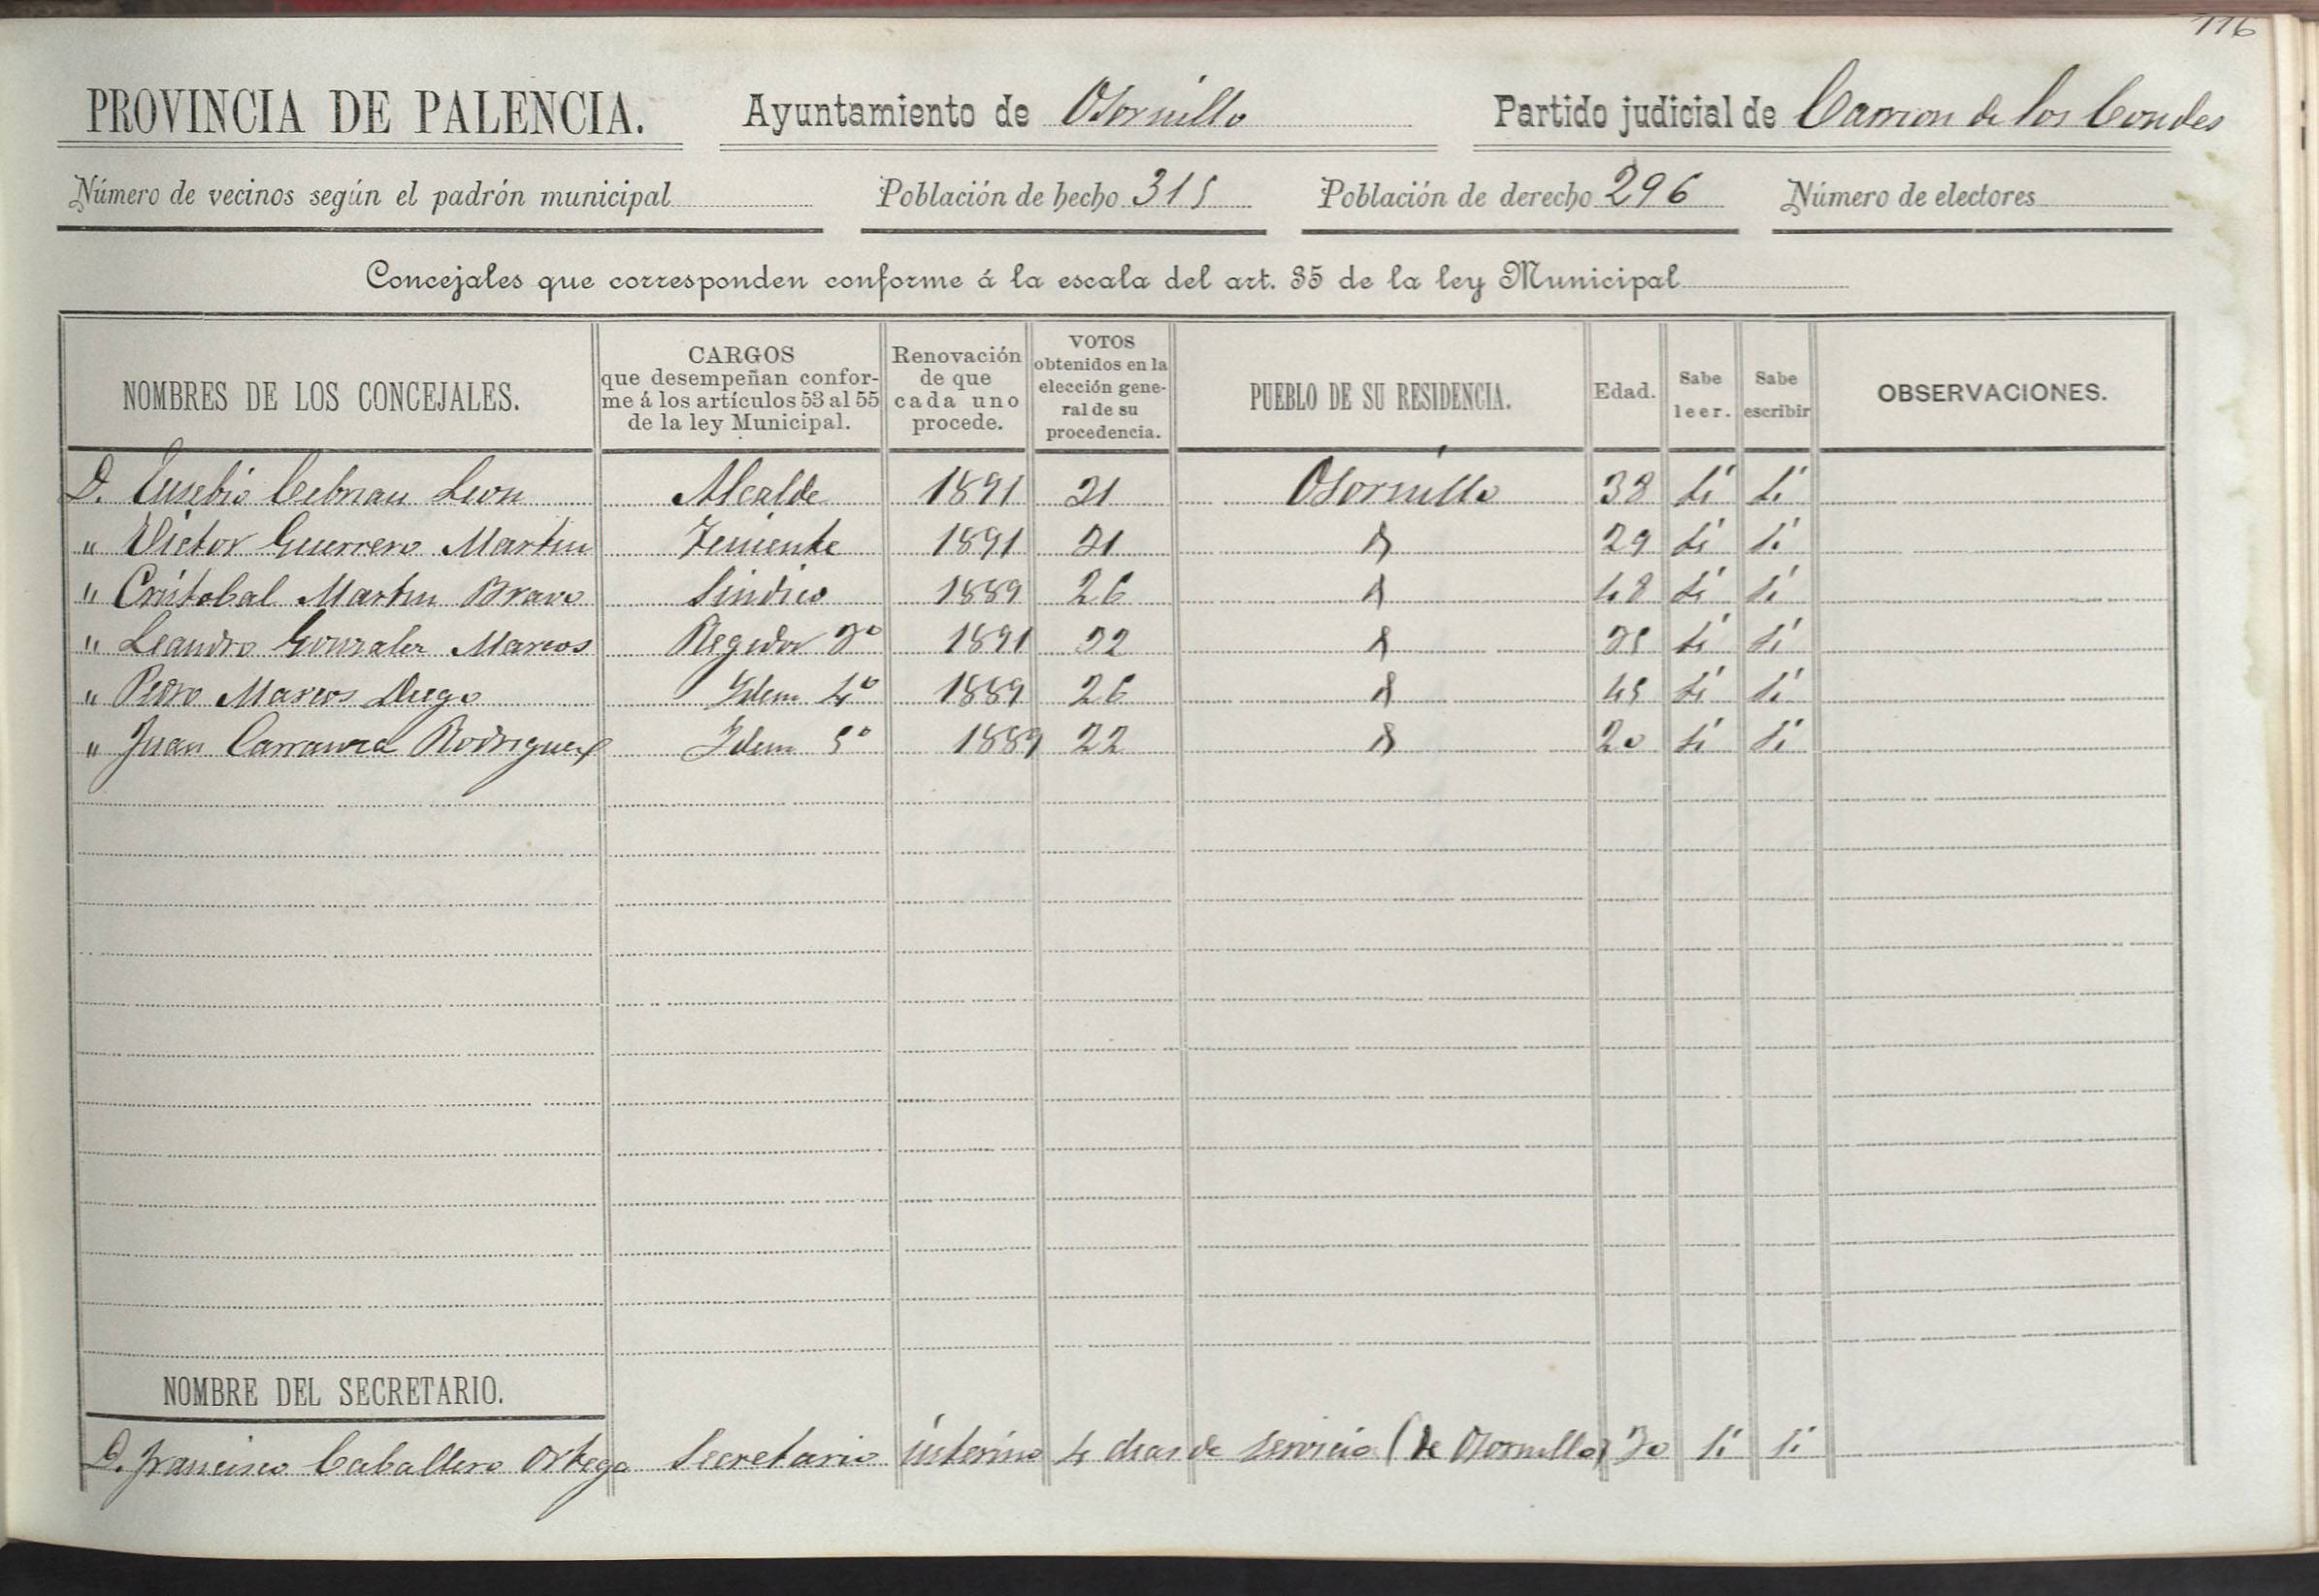 116
PROVINCIA DE PALENCIA. Ayuntamiento de Osornillo Partido judicial de Carrion de los Condes
Número de vecinos según el padrón municipal Población de hecho 315 Población de derecho 296 Número de electores
Concejales que corresponden conforme á la escala del art. 35 de la ley Municipal
NOMBRES DE LOS CONCEJALES. CARGOS que desempeñan conforme á los artículos 53 al 55 de la ley Municipal. Renovación de que cada uno procede. VOTOS obtenidos en la elección general de su procedencia. PUEBLO DE SU RESIDENCIA. Edad. Sabe leer. Sabe escribir OBSERVACIONES.
D. Eusebio Cebrian Leon Alcalde 1891 21 Osornillo 38 Sí Sí
" Victor Guerrero Martin Teniente 1891 21 29 Sí Sí
" Cristobal Martin Bravo Sindico 1889 26 48 Sí Sí
" Leandro Gonzalez Marcos Regidor 3º 1891 32 35 Sí Sí
" Pedro Marcos Diego Idem 4º 1889 26 45 Sí Sí
" Juan Carranza Rodriguez Idem 5º 1889 22 20 Sí Sí
NOMBRE DEL SECRETARIO.
D. Francisco Caballero Ortega Secretario interino 4 dias de servicio (de Osornillo) 30 Sí Sí